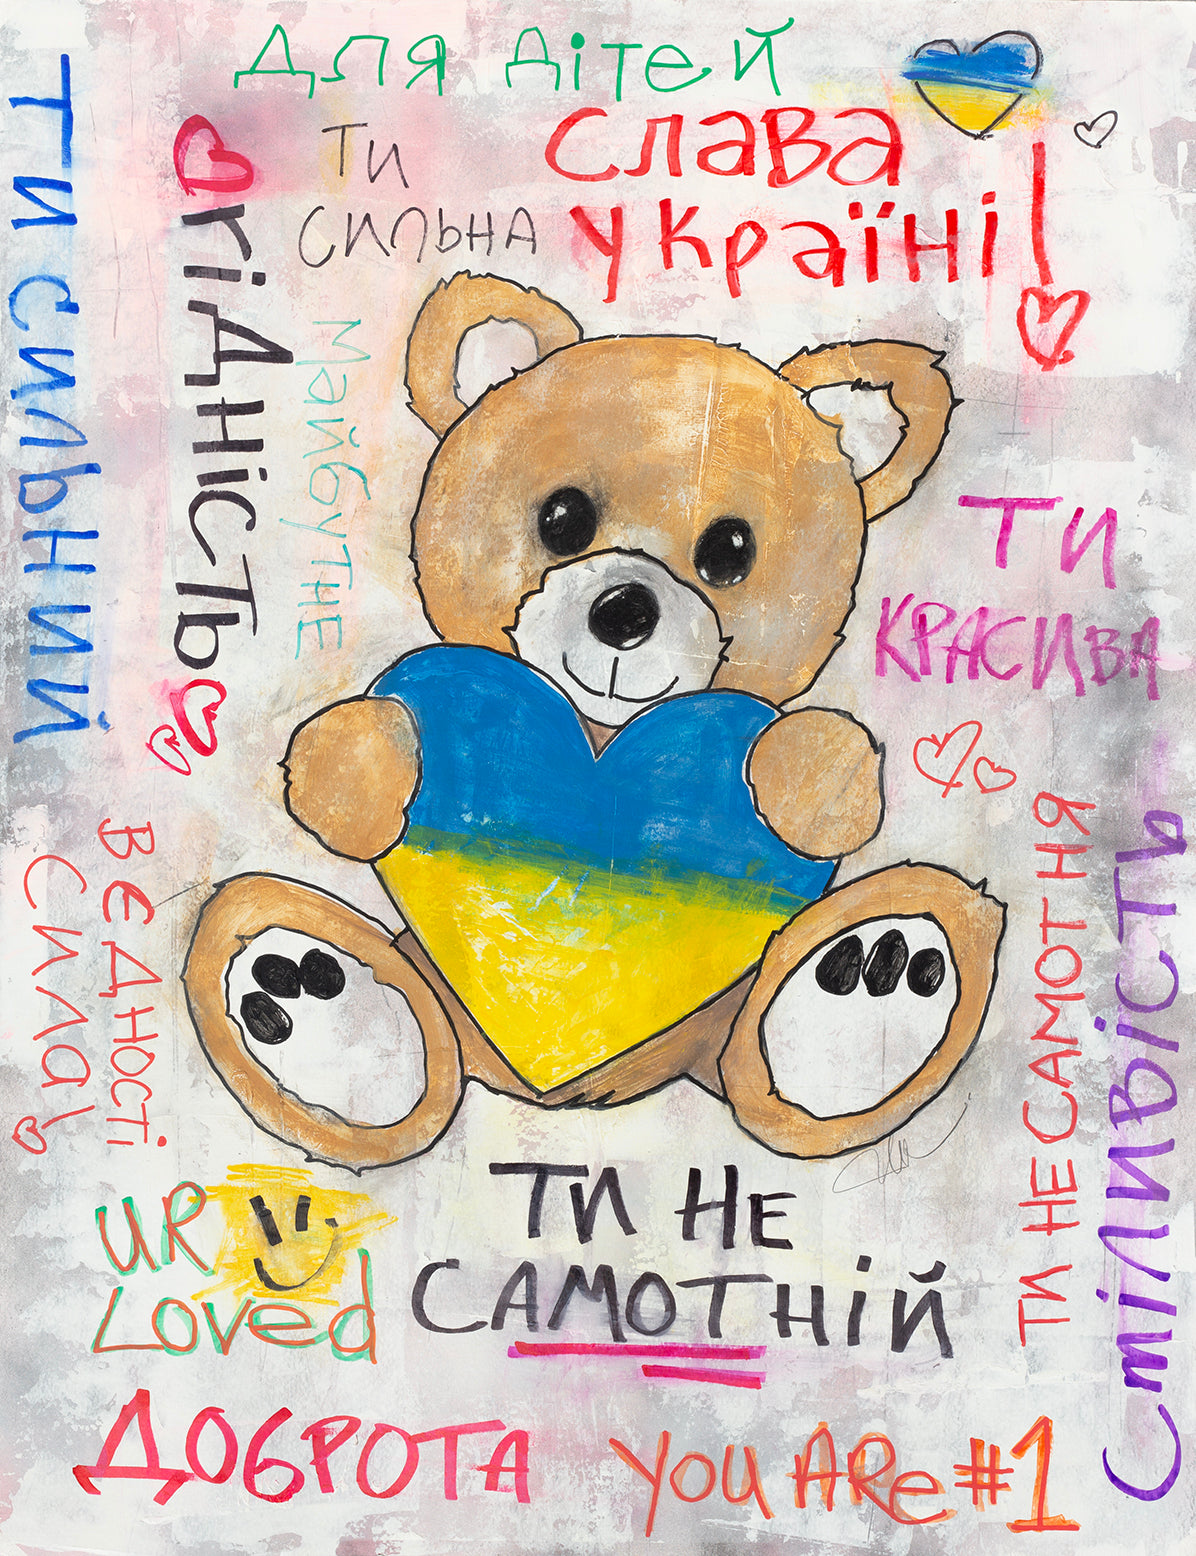 для дітей
слава
україні!
ти
сильна
ти сильний
гідність
майбутнє
ти
КРАСИВА
В ЄДНОСТІ
сила!
ТИ НЕ САМОТНЯ
сміливість
UR
Loved
ТИ НЕ
САМОТНІЙ
ДОБРОТА
YOU ARe #1